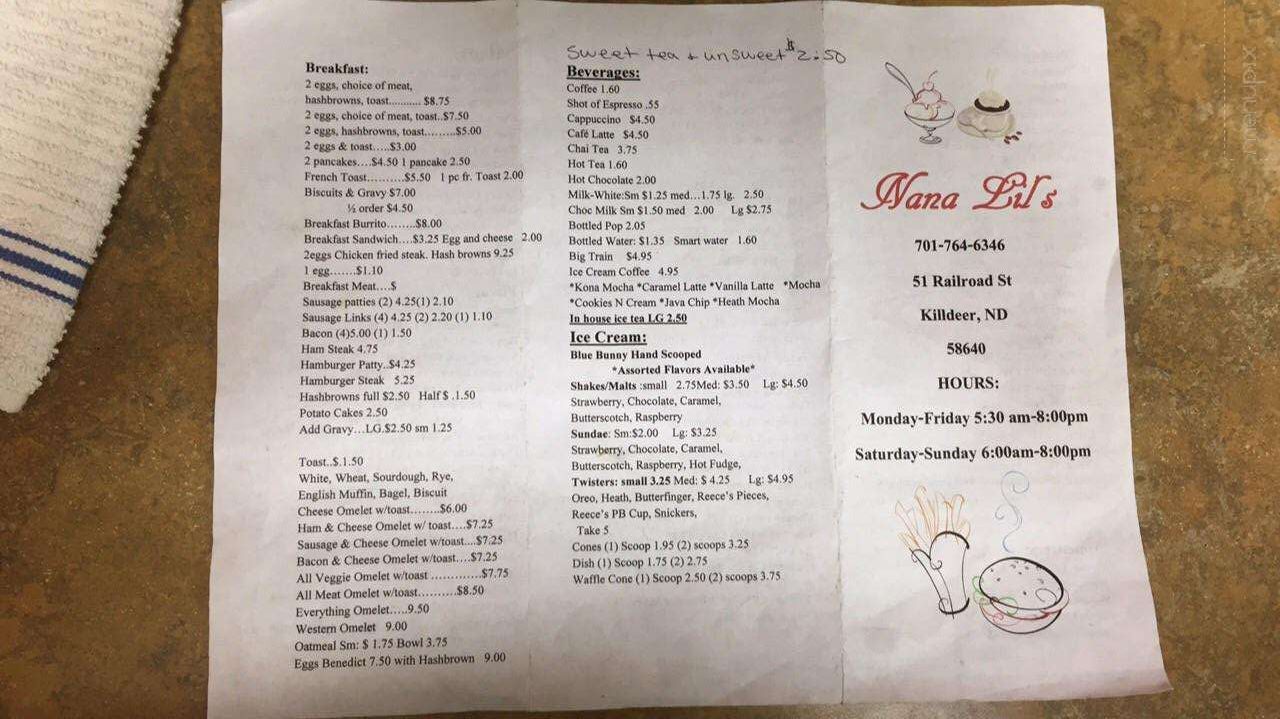 Breakfast:
2 eggs, choice of meat,
hashbrowns, toast........... $8.75
2 eggs, choice of meat, toast..$7.50
2 eggs, hashbrowns, toast.........$5.00
2 eggs & toast.....$3.00
2 pancakes....$4.50 1 pancake 2.50
French Toast..........$5.50 1 pc fr. Toast 2.00
Biscuits & Gravy $7.00
½ order $4.50
Breakfast Burrito........$8.00
Breakfast Sandwich....$3.25 Egg and cheese 2.00
2eggs Chicken fried steak. Hash browns 9.25
1 egg.......$1.10
Breakfast Meat....$
Sausage patties (2) 4.25(1) 2.10
Sausage Links (4) 4.25 (2) 2.20 (1) 1.10
Bacon (4)5.00 (1) 1.50
Ham Steak 4.75
Hamburger Patty..$4.25
Hamburger Steak 5.25
Hashbrowns full $2.50 Half $ .1.50
Potato Cakes 2.50
Add Gravy...LG.$2.50 sm 1.25
Toast..$.1.50
White, Wheat, Sourdough, Rye,
English Muffin, Bagel, Biscuit
Cheese Omelet w/toast........$6.00
Ham & Cheese Omelet w/ toast....$7.25
Sausage & Cheese Omelet w/toast....$7.25
Bacon & Cheese Omelet w/toast....$7.25
All Veggie Omelet w/toast .............$7.75
All Meat Omelet w/toast..........$8.50
Everything Omelet.....9.50
Western Omelet 9.00
Oatmeal Sm: $ 1.75 Bowl 3.75
Eggs Benedict 7.50 with Hashbrown 9.00
Sweet tea + unsweet $2.50
Beverages:
Coffee 1.60
Shot of Espresso .55
Cappuccino $4.50
Café Latte $4.50
Chai Tea 3.75
Hot Tea 1.60
Hot Chocolate 2.00
Milk-White:Sm $1.25 med...1.75 lg. 2.50
Choc Milk Sm $1.50 med 2.00 Lg $2.75
Bottled Pop 2.05
Bottled Water: $1.35 Smart water 1.60
Big Train $4.95
Ice Cream Coffee 4.95
*Kona Mocha *Caramel Latte *Vanilla Latte *Mocha
*Cookies N Cream *Java Chip *Heath Mocha
In house ice tea LG 2.50
Ice Cream:
Blue Bunny Hand Scooped
*Assorted Flavors Available*
Shakes/Malts :small 2.75Med: $3.50 Lg: $4.50
Strawberry, Chocolate, Caramel,
Butterscotch, Raspberry
Sundae: Sm:$2.00 Lg: $3.25
Strawberry, Chocolate, Caramel,
Butterscotch, Raspberry, Hot Fudge,
Twisters: small 3.25 Med: $ 4.25 Lg: $4.95
Oreo, Heath, Butterfinger, Reece's Pieces,
Reece's PB Cup, Snickers,
Take 5
Cones (1) Scoop 1.95 (2) scoops 3.25
Dish (1) Scoop 1.75 (2) 2.75
Waffle Cone (1) Scoop 2.50 (2) scoops 3.75
Nana Lil's
701-764-6346
51 Railroad St
Killdeer, ND
58640
HOURS:
Monday-Friday 5:30 am-8:00pm
Saturday-Sunday 6:00am-8:00pm